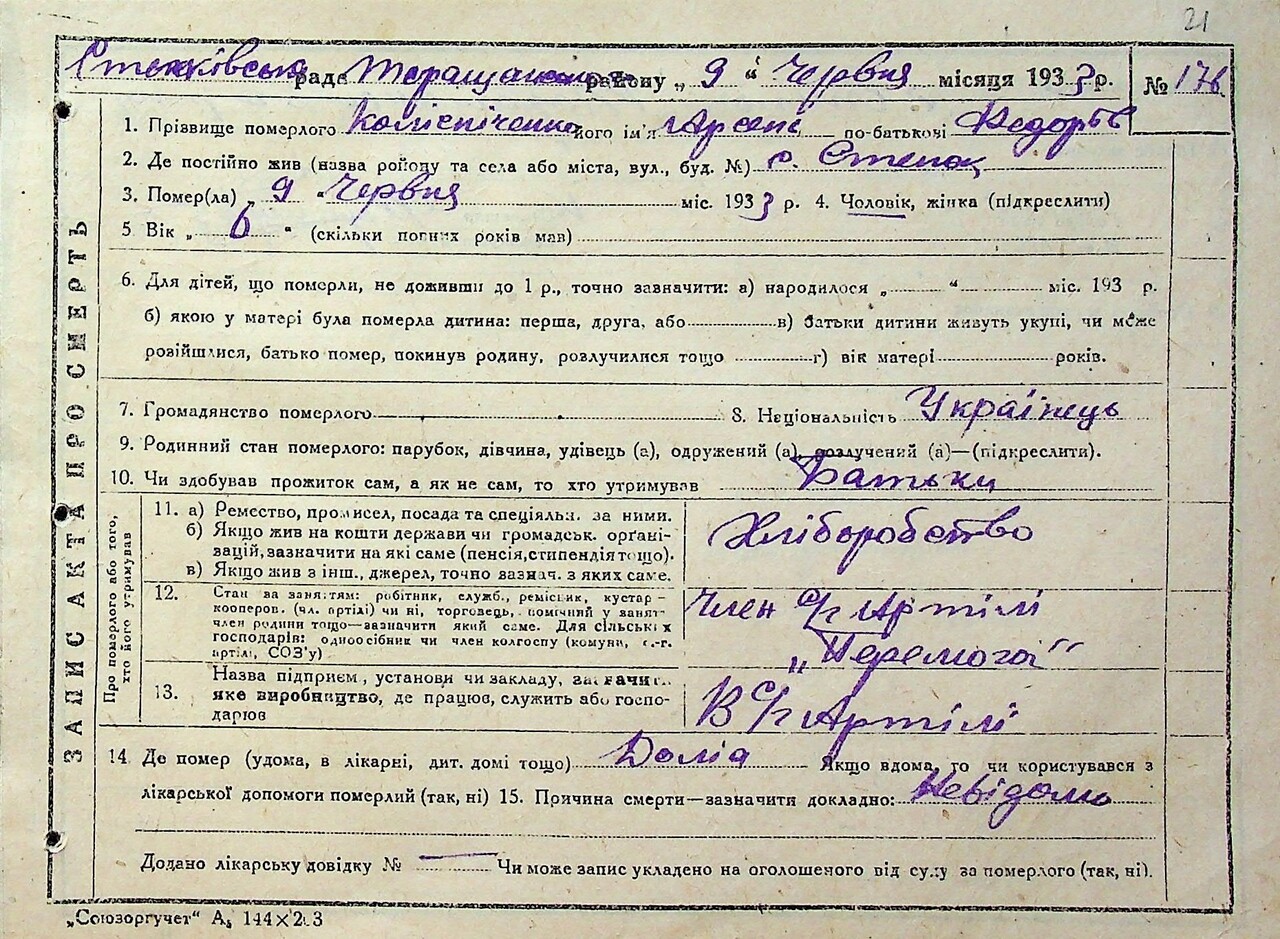 21
Степківська рада Таращанського району „ 9 “ Червня місяця 1933 р. № 176
1. Прізвище померлого його ім'я Арсені по-батькові Федорів
2. Де постійно жив (назва ройону та села або міста, вул., буд. №) с. Степок
3. Помер(ла) „ 9 “ Червня міс. 1933 р. 4. Чоловік, жінка (підкреслити)
5 Вік „ 6 “ (скільки повних років мав)
6. Для дітей, що померли, не доживши до 1 р., точно зазначити: а) народилося „ “ міс. 193 р.
б) якою у матері була померла дитина: перша, друга, або в) батьки дитини живуть укупі, чи може
розійшлися, батько помер, покинув родину, розлучилися тощо г) вік матері років.
7. Громадянство померлого 8. Національність Українець
9. Родинний стан померлого: парубок, дівчина, удівець (а), одружений (а), розлучений (а)—(підкреслити).
10. Чи здобував прожиток сам, а як не сам, то хто утримував Батьки
ЗАПИС АКТА ПРО СМЕРТЬ
Про померлого або того,
хто його утримував
11. а) Ремество, промисел, посада та спеціяльн. за ними.
б) Якщо жив на кошти держави чи громадськ. орґані-
зацій, зазначити на які саме (пенсія, стипендія тощо).
в) Якщо жив з інш., джерел, точно зазнач. з яких саме.
Хліборобство
12. Стан за занятям: робітник, служб., ремісник, кустар-
кооперов. (чл. артілі) чи ні, торговець, помічний у занят.
член родини тощо—зазначити який саме. Для сільських
господарів: одноосібник чи член колгоспу (комуни, с.-г.
артілі, СОЗ'у)
Член с/г Артілі
„Перемога“
13. Назва підприєм, установи чи закладу, зазначит.
яке виробництво, де працює, служить або госпо-
дарює
В с/г Артілі
14 Де помер (удома, в лікарні, дит. домі тощо) Дома Якщо вдома, то чи користувався з
лікарської допомоги померлий (так, ні) 15. Причина смерти—зазначити докладно: Невідомо
Додано лікарську довідку № Чи може запис укладено на оголошеного від суду за померлого (так, ні).
„Союзоргучет“ А₅ 144×203